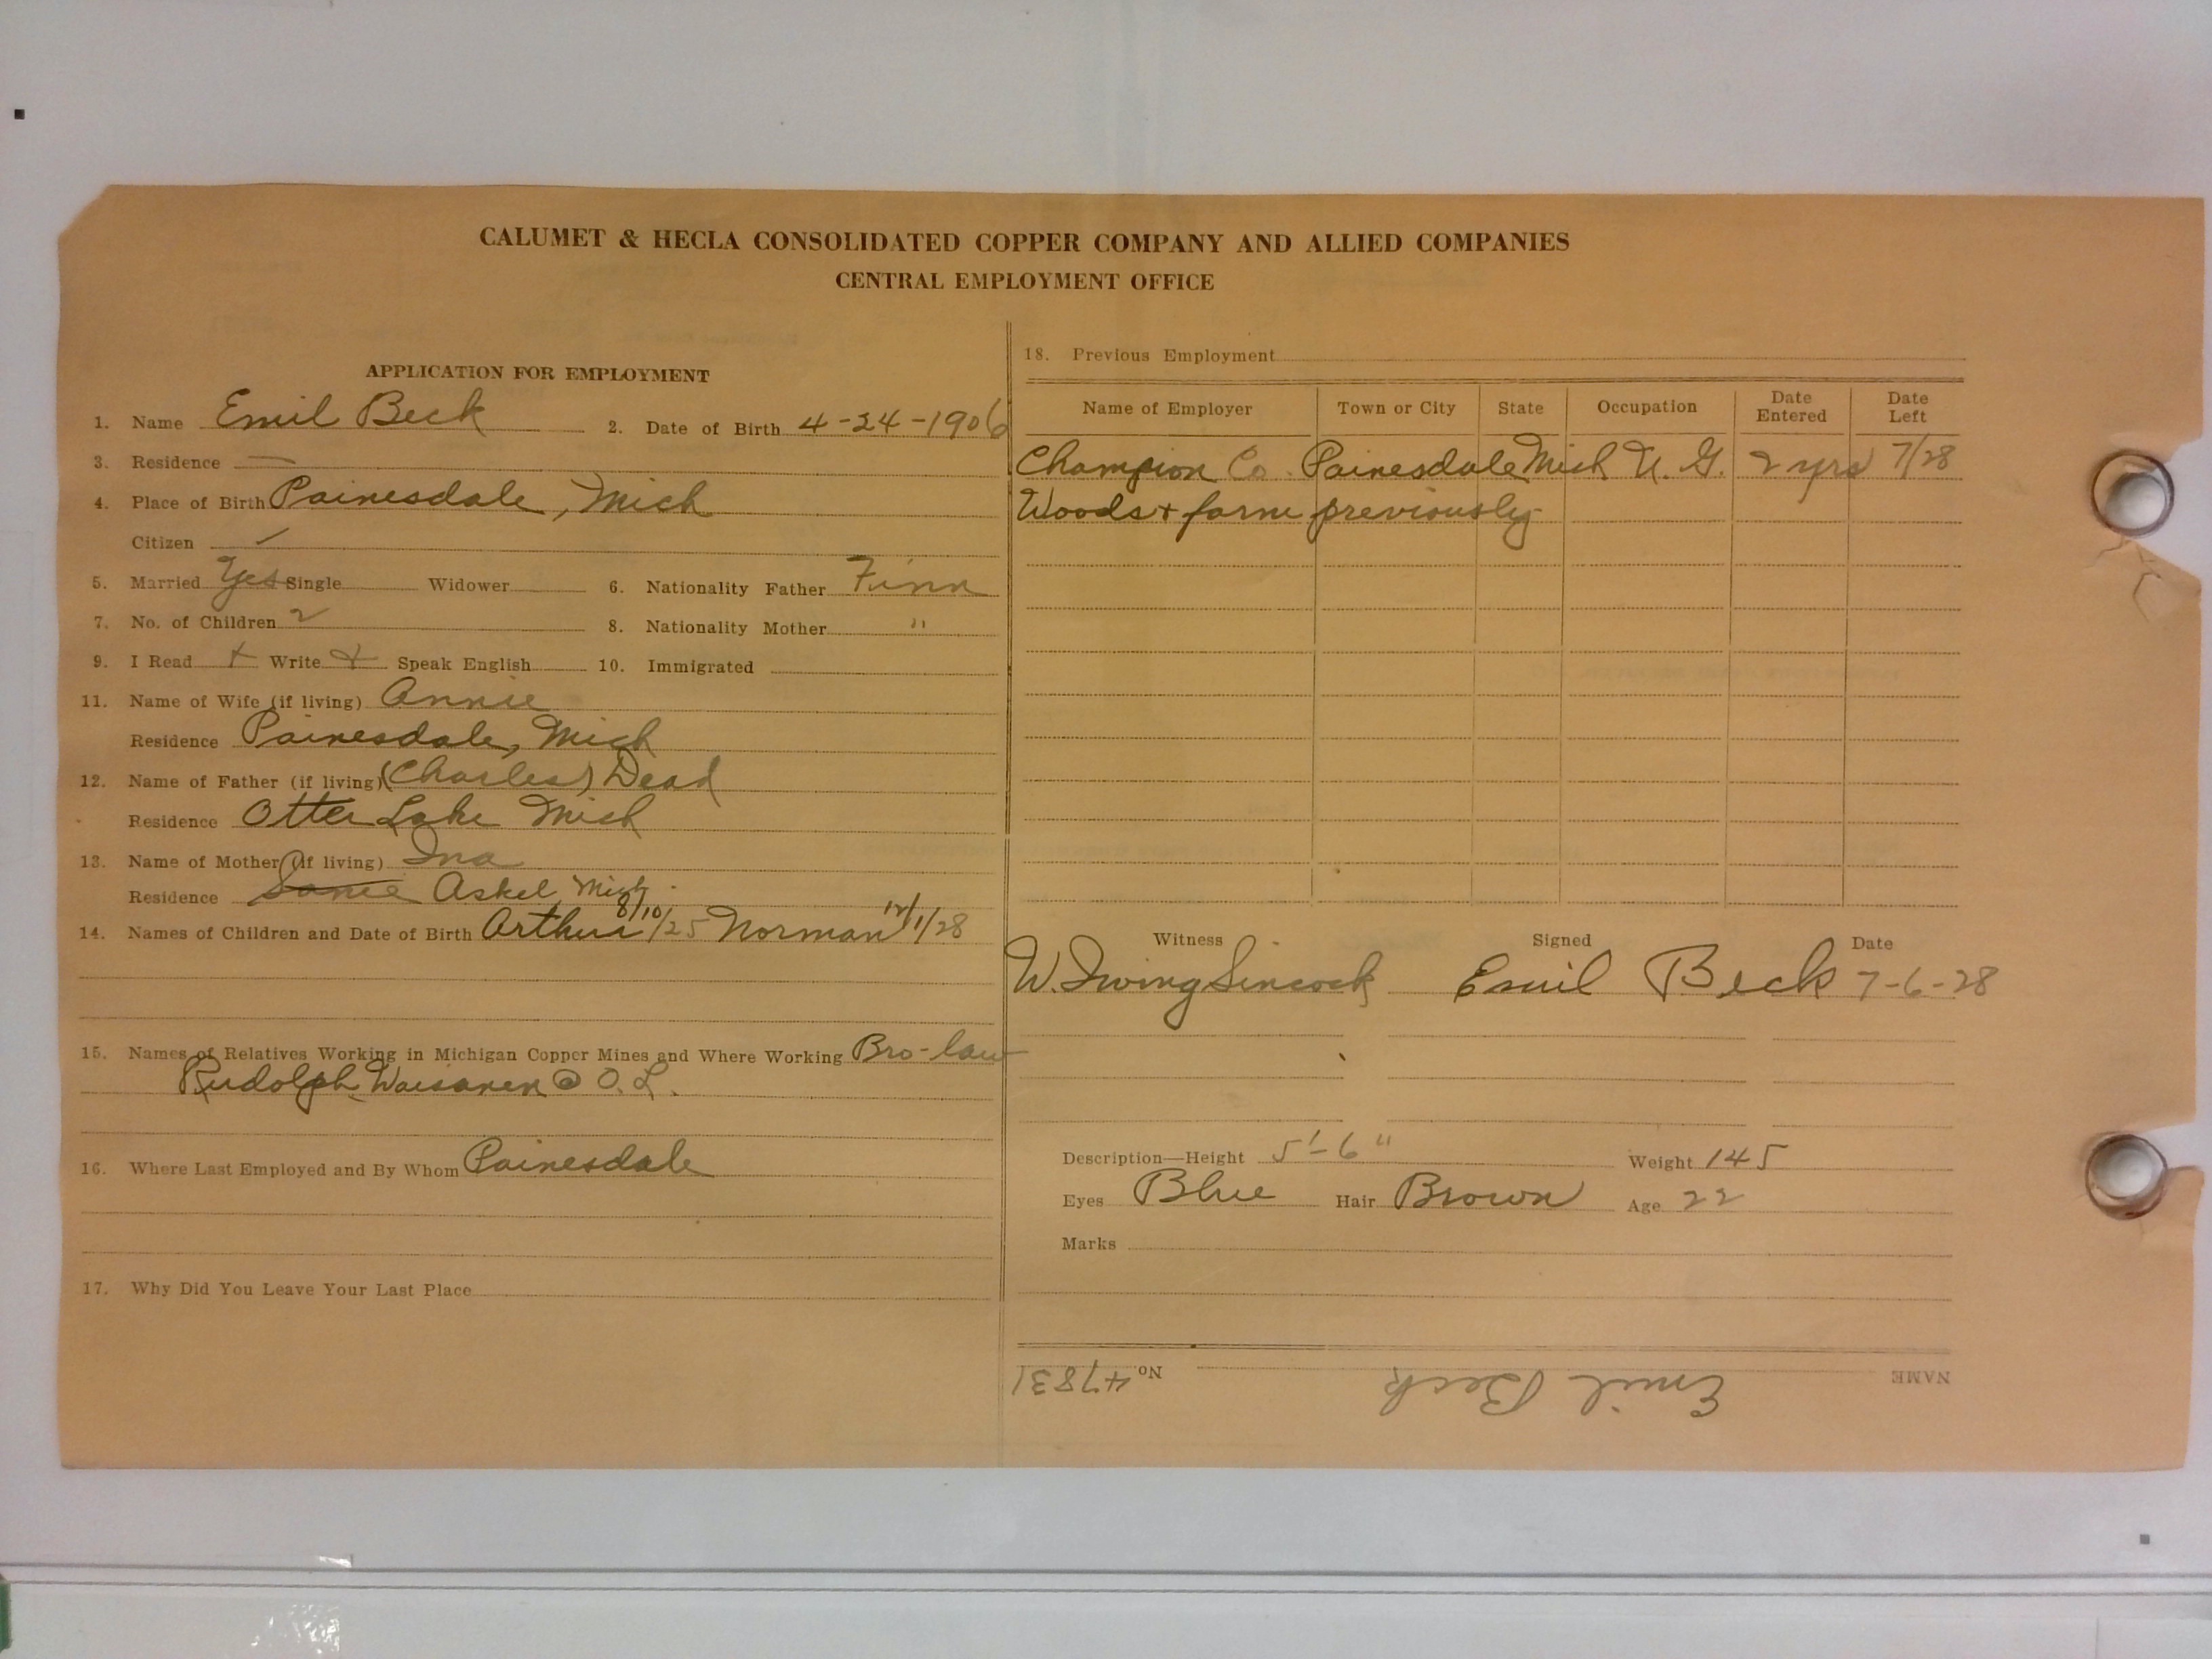 CALUMET & HECLA CONSOLIDATED COPPER COMPANY AND ALLIED COMPANIES
CENTRAL EMPLOYMENT OFFICE
APPLICATION FOR EMPLOYMENT
1. Name Emil Beck 2. Date of Birth 4-24-1906
3. Residence —
4. Place of Birth Painesdale, Mich
Citizen ✓
5. Married Yes Single Widower 6. Nationality Father Finn
7. No. of Children 2 8. Nationality Mother "
9. I Read + Write + Speak English 10. Immigrated
11. Name of Wife (if living) Annie
Residence Painesdale, Mich
12. Name of Father (if living) (Charles) Dead
Residence Otter Lake Mich
13. Name of Mother (if living) Ina
Residence Same Askel, Mich.
14. Names of Children and Date of Birth Arthur 8/10/25 Norman 12/1/28
15. Names of Relatives Working in Michigan Copper Mines and Where Working Bro-law
Rudolph Waisanen @ O. L.
16. Where Last Employed and By Whom Painesdale
17. Why Did You Leave Your Last Place
18. Previous Employment
Name of Employer Town or City State Occupation Date Entered Date Left
Champion Co. Painesdale Mich U. G. 2 yrs 7/28
Woods + farm previously
Witness Signed Date
W. Irving Sincock Emil Beck 7-6-28
Description—Height 5'-6" Weight 145
Eyes Blue Hair Brown Age 22
Marks
NAME Emil Beck No. 47831